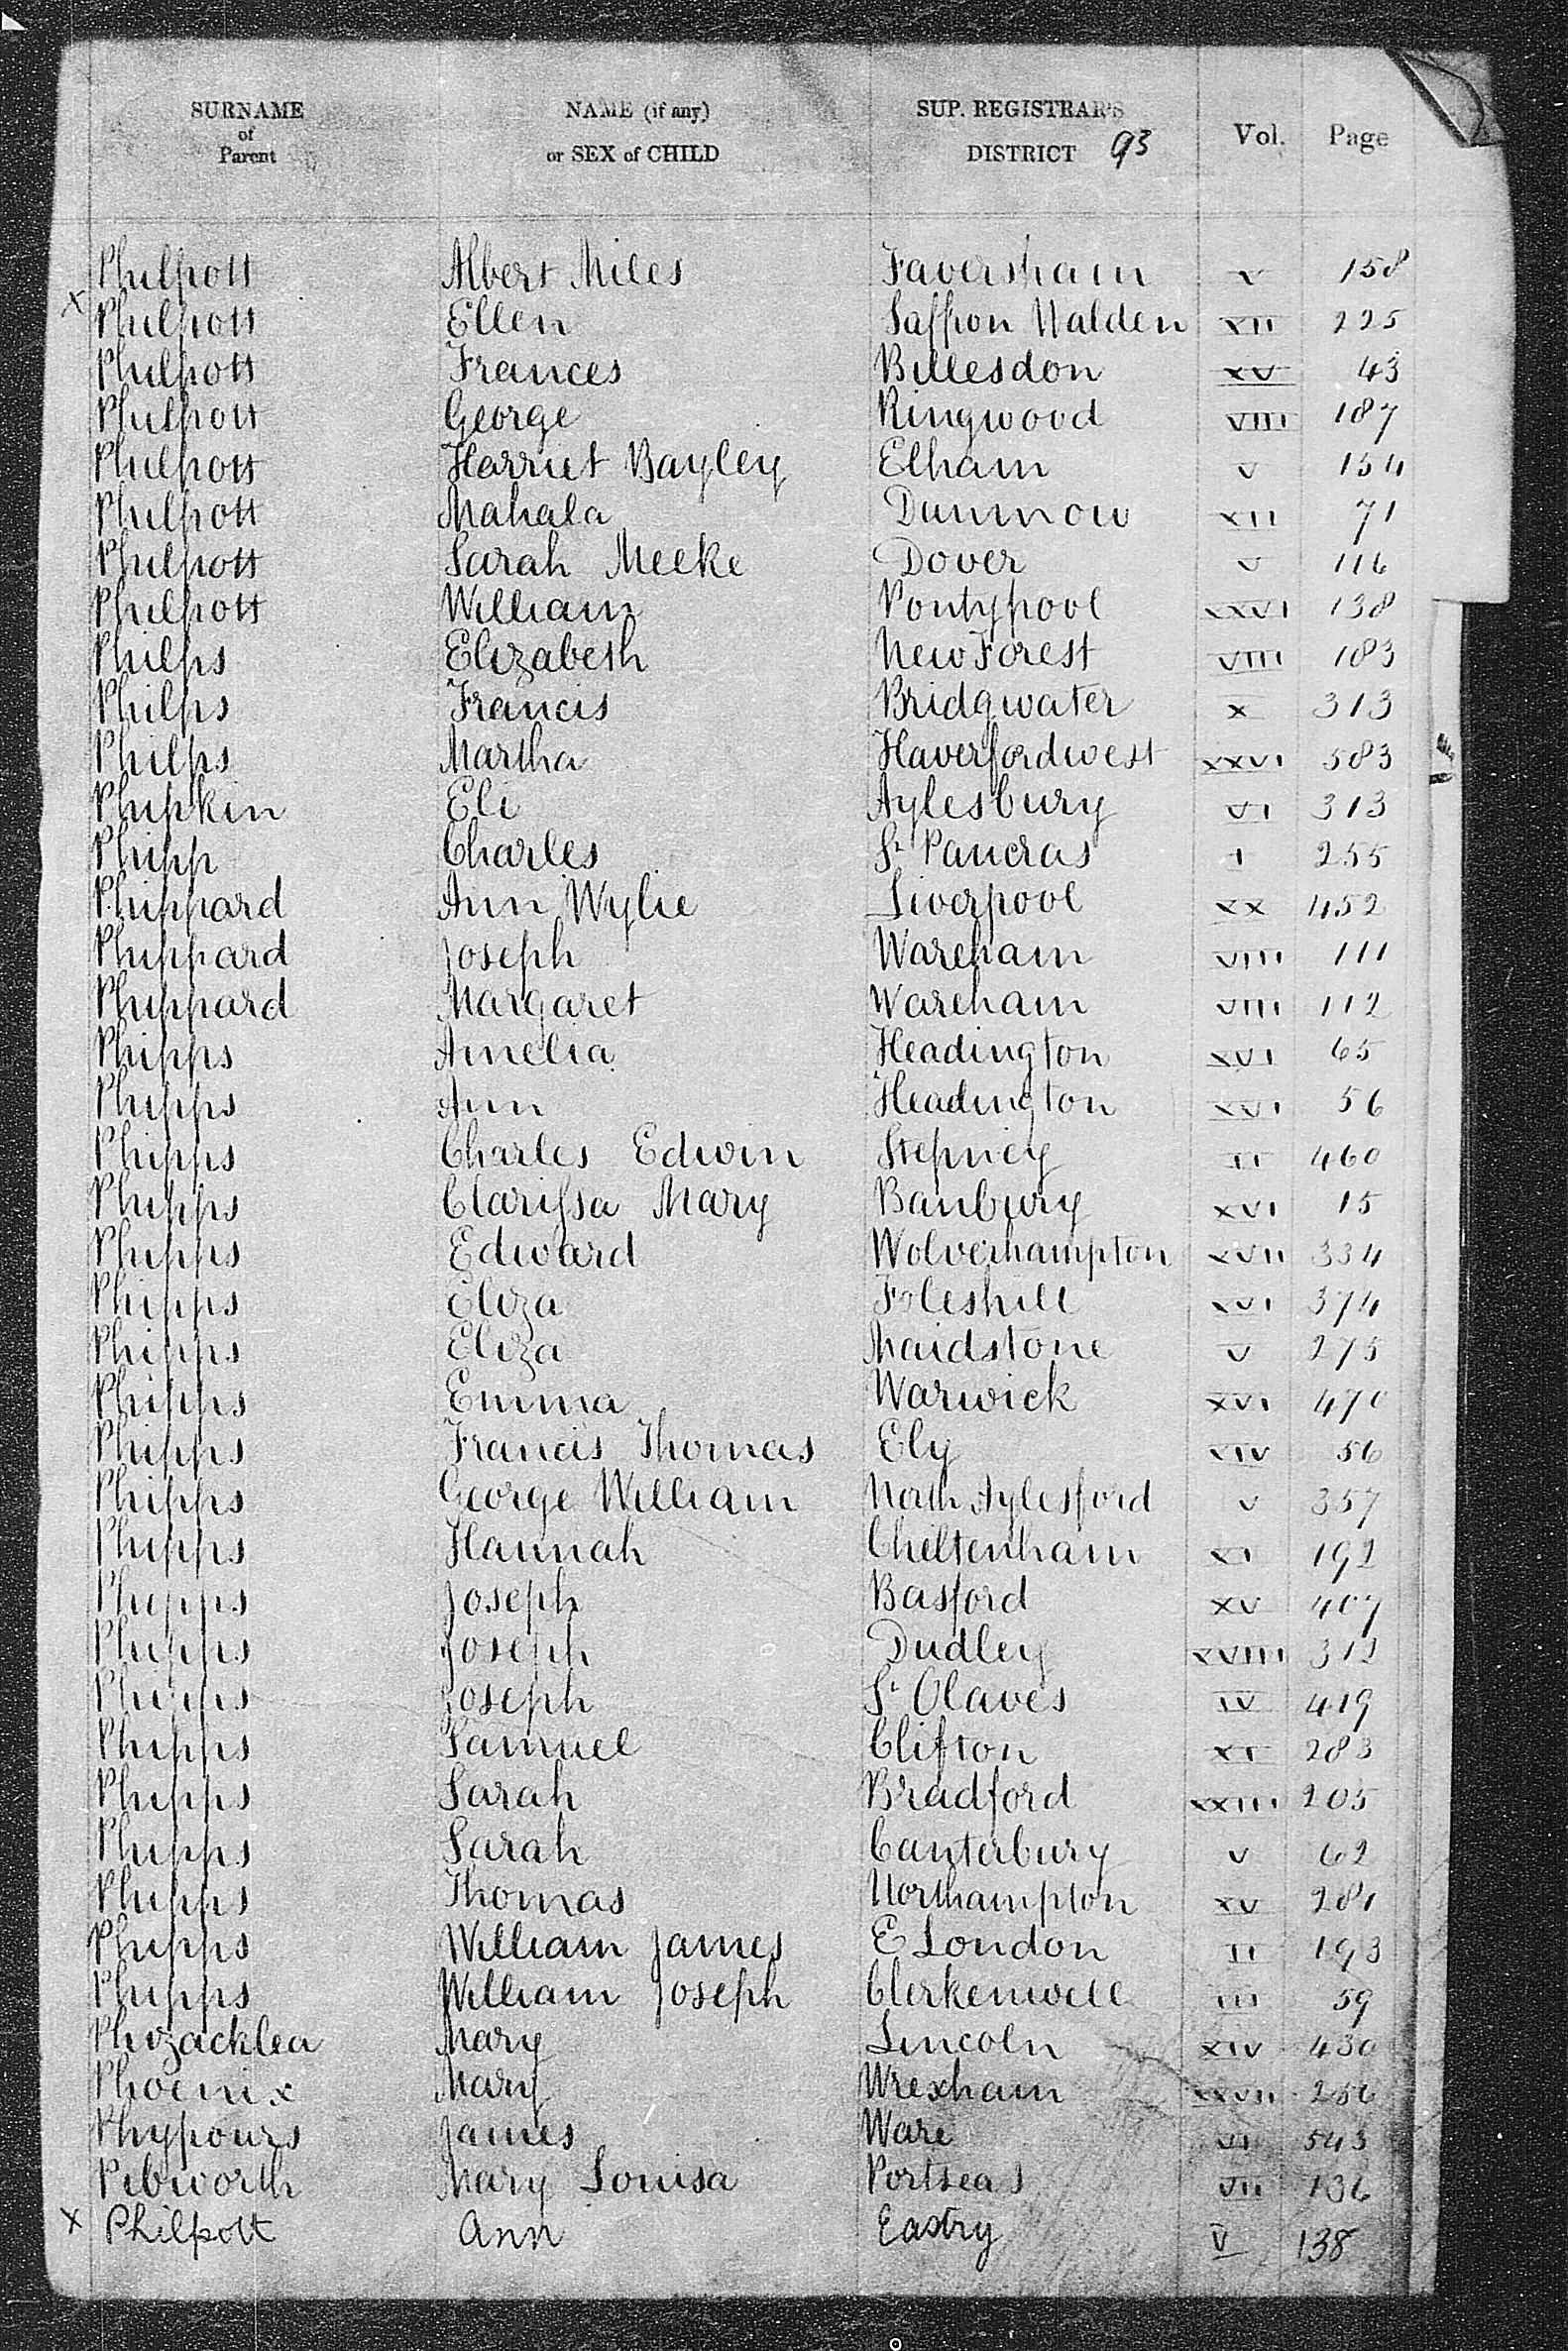 SURNAME NAME (if any) SUP. REGISTRAR'S Vol. Page
of
Parent or SEX of CHILD DISTRICT 93
Philpott Albert Miles Faversham V 158
x Philpott Ellen Saffron Walden XII 225
Philpott Frances Billesdon XV 43
Philpott George Ringwood VIII 187
Philpott Harriet Bayley Elham V 154
Philpott Mahala Dunmow XII 71
Philpott Sarah Meeke Dover V 116
Philpott William Pontypool XXVI 138
Philps Elizabeth New Forest VIII 183
Philps Francis Bridgwater X 313
Philps Martha Haverfordwest XXVI 583
Phipkin Eli Aylesbury VI 313
Phipp Charles St Pancras I 255
Phippard Ann Wylie Liverpool XX 452
Phippard Joseph Wareham VIII 111
Phippard Margaret Wareham VIII 112
Phipps Amelia Headington XVI 65
Phipps Ann Headington XVI 56
Phipps Charles Edwin Stepney II 460
Phipps Clarissa Mary Banbury XVI 15
Phipps Edward Wolverhampton XVII 334
Phipps Eliza Foleshill XVI 374
Phipps Eliza Maidstone V 275
Phipps Emma Warwick XVI
Phipps Francis Thomas Ely XIV 56
Phipps George William North Aylesford V 357
Phipps Hannah Cheltenham XI 192
Phipps Joseph Basford XV 407
Phipps Joseph Dudley XVIII 312
Phipps Joseph St Olaves IV 419
Phipps Samuel Clifton XI 283
Phipps Sarah Bradford XXIII 205
Phipps Sarah Canterbury V 62
Phipps Thomas Northampton XV 281
Phipps William James E London II 193
Phipps William Joseph Clerkenwell III 59
Phizacklea Mary Lincoln XIV 430
Phoenix Mary Wrexham XXVII 256
Phypours James Ware VI 543
Pibworth Mary Louisa Portsea VII 136
x Philpott Ann Eastry V 138